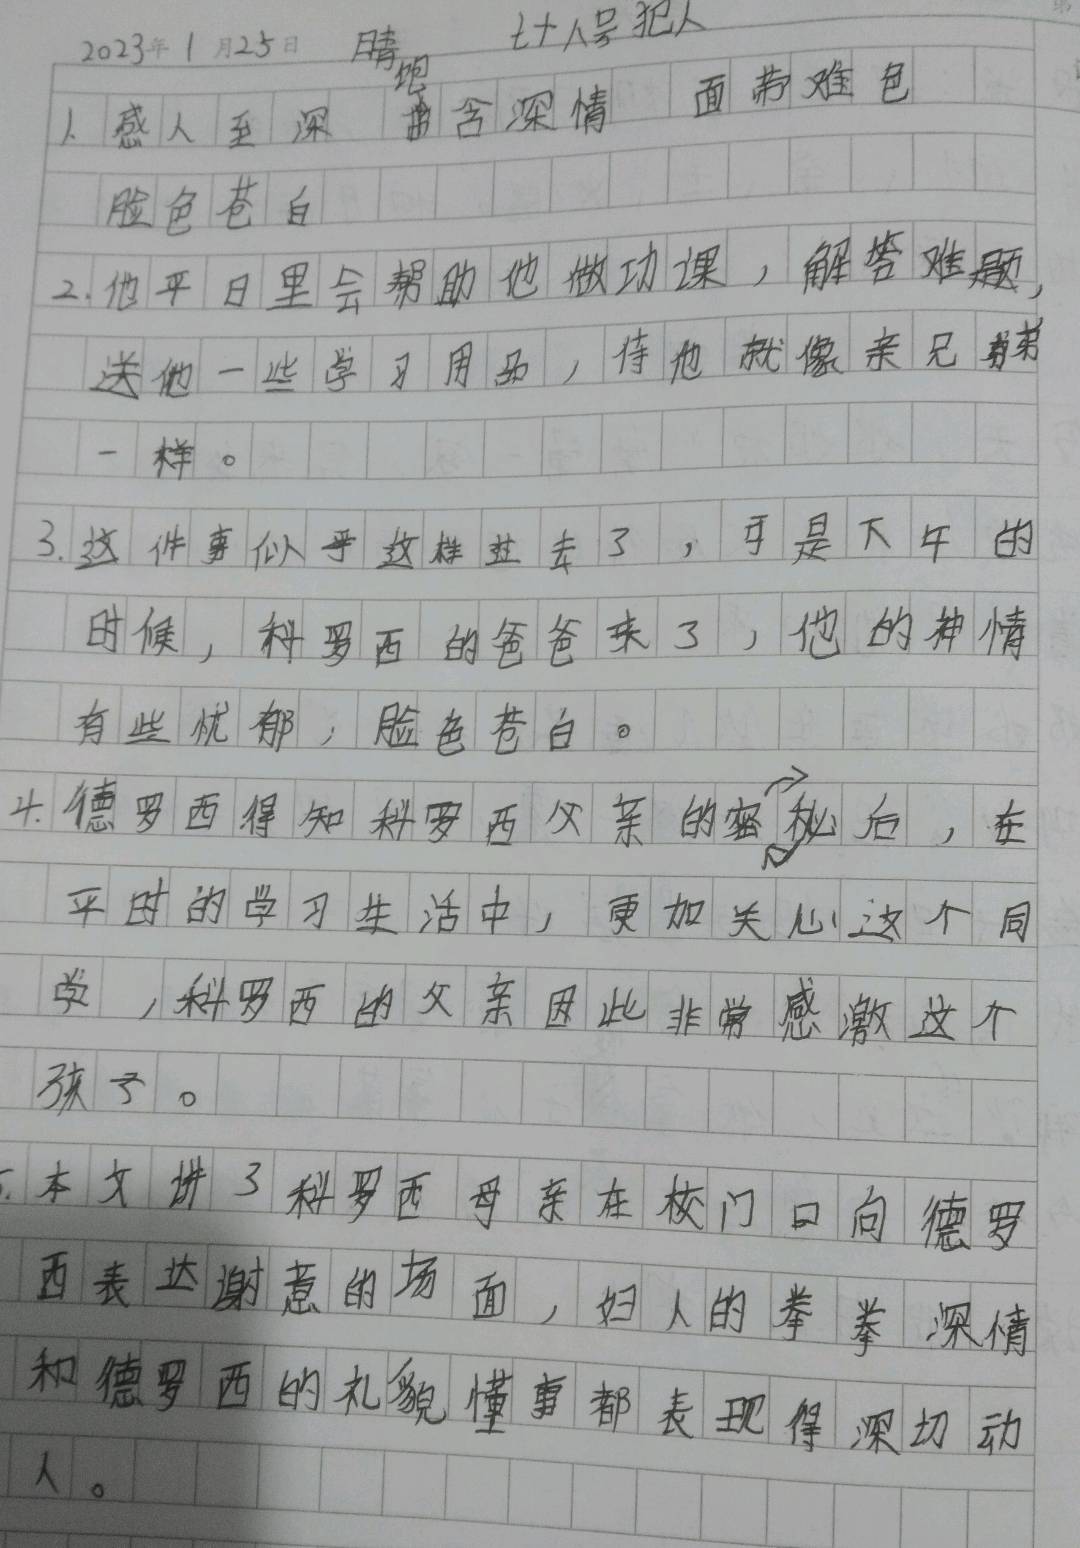 2023年1月25日 晴 七十八号犯人
1. 感人至深 饱含深情 面带难色
脸色苍白
2. 他平日里会帮助他做功课，解答难题，
送他一些学习用品，待他就像亲兄弟
一样。
3. 这件事似乎这样过去了，可是下午的
时候，科罗西的爸爸来了，他的神情
有些忧郁，脸色苍白。
4. 德罗西得知科罗西父亲的密秘后，在
平时的学习生活中，更加关心这个同
学，科罗西的父亲因此非常感激这个
孩子。
5. 本文讲了科罗西母亲在校门口向德罗
西表达谢意的场面，妇人的拳拳深情
和德罗西的礼貌懂事都表现得深切动
人。